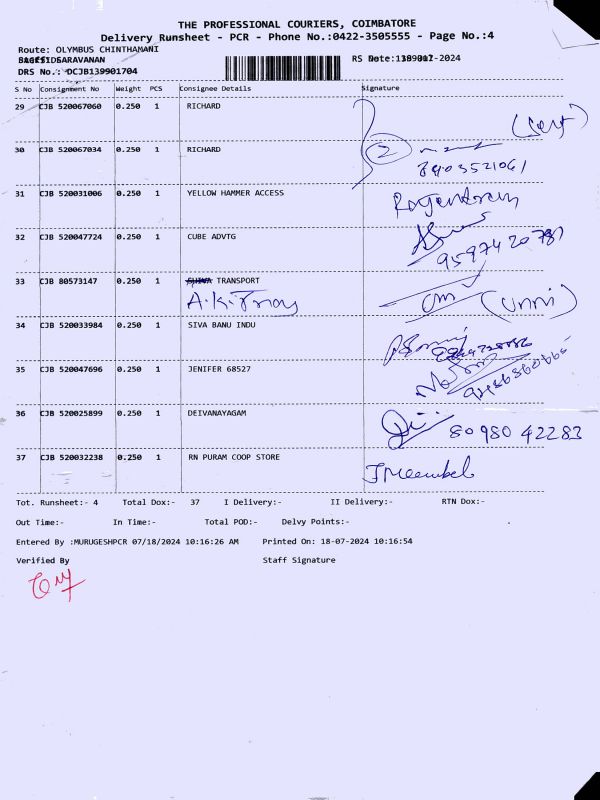 THE PROFESSIONAL COURIERS, COIMBATORE
Delivery Runsheet - PCR - Phone No.:0422-3505555 - Page No.:4
Route: OLYMBUS CHINTHAMANI
SARAVANAN
RS Date: -2024
DRS No.: DCJB139901704
S No Consignment No Weight PCS Consignee Details Signature
29 CJB 520067060 0.250 1 RICHARD
30 CJB 520067034 0.250 1 RICHARD 2
31 CJB 520031006 0.250 1 YELLOW HAMMER ACCESS
32 CJB 520047724 0.250 1 CUBE ADVTG
33 CJB 80573147 0.250 1 TRANSPORT
(unni)
34 CJB 520033984 0.250 1 SIVA BANU INDU
35 CJB 520047696 0.250 1 JENIFER 68527
36 CJB 520025899 0.250 1 DEIVANAYAGAM
80980 42283
37 CJB 520032238 0.250 1 RN PURAM COOP STORE
Tot. Runsheet:- 4 Total Dox:- 37 I Delivery:- II Delivery:- RTN Dox:-
Out Time:- In Time:- Total POD:- Delvy Points:-
Entered By :MURUGESHPCR 07/18/2024 10:16:26 AM Printed On: 18-07-2024 10:16:54
Verified By Staff Signature